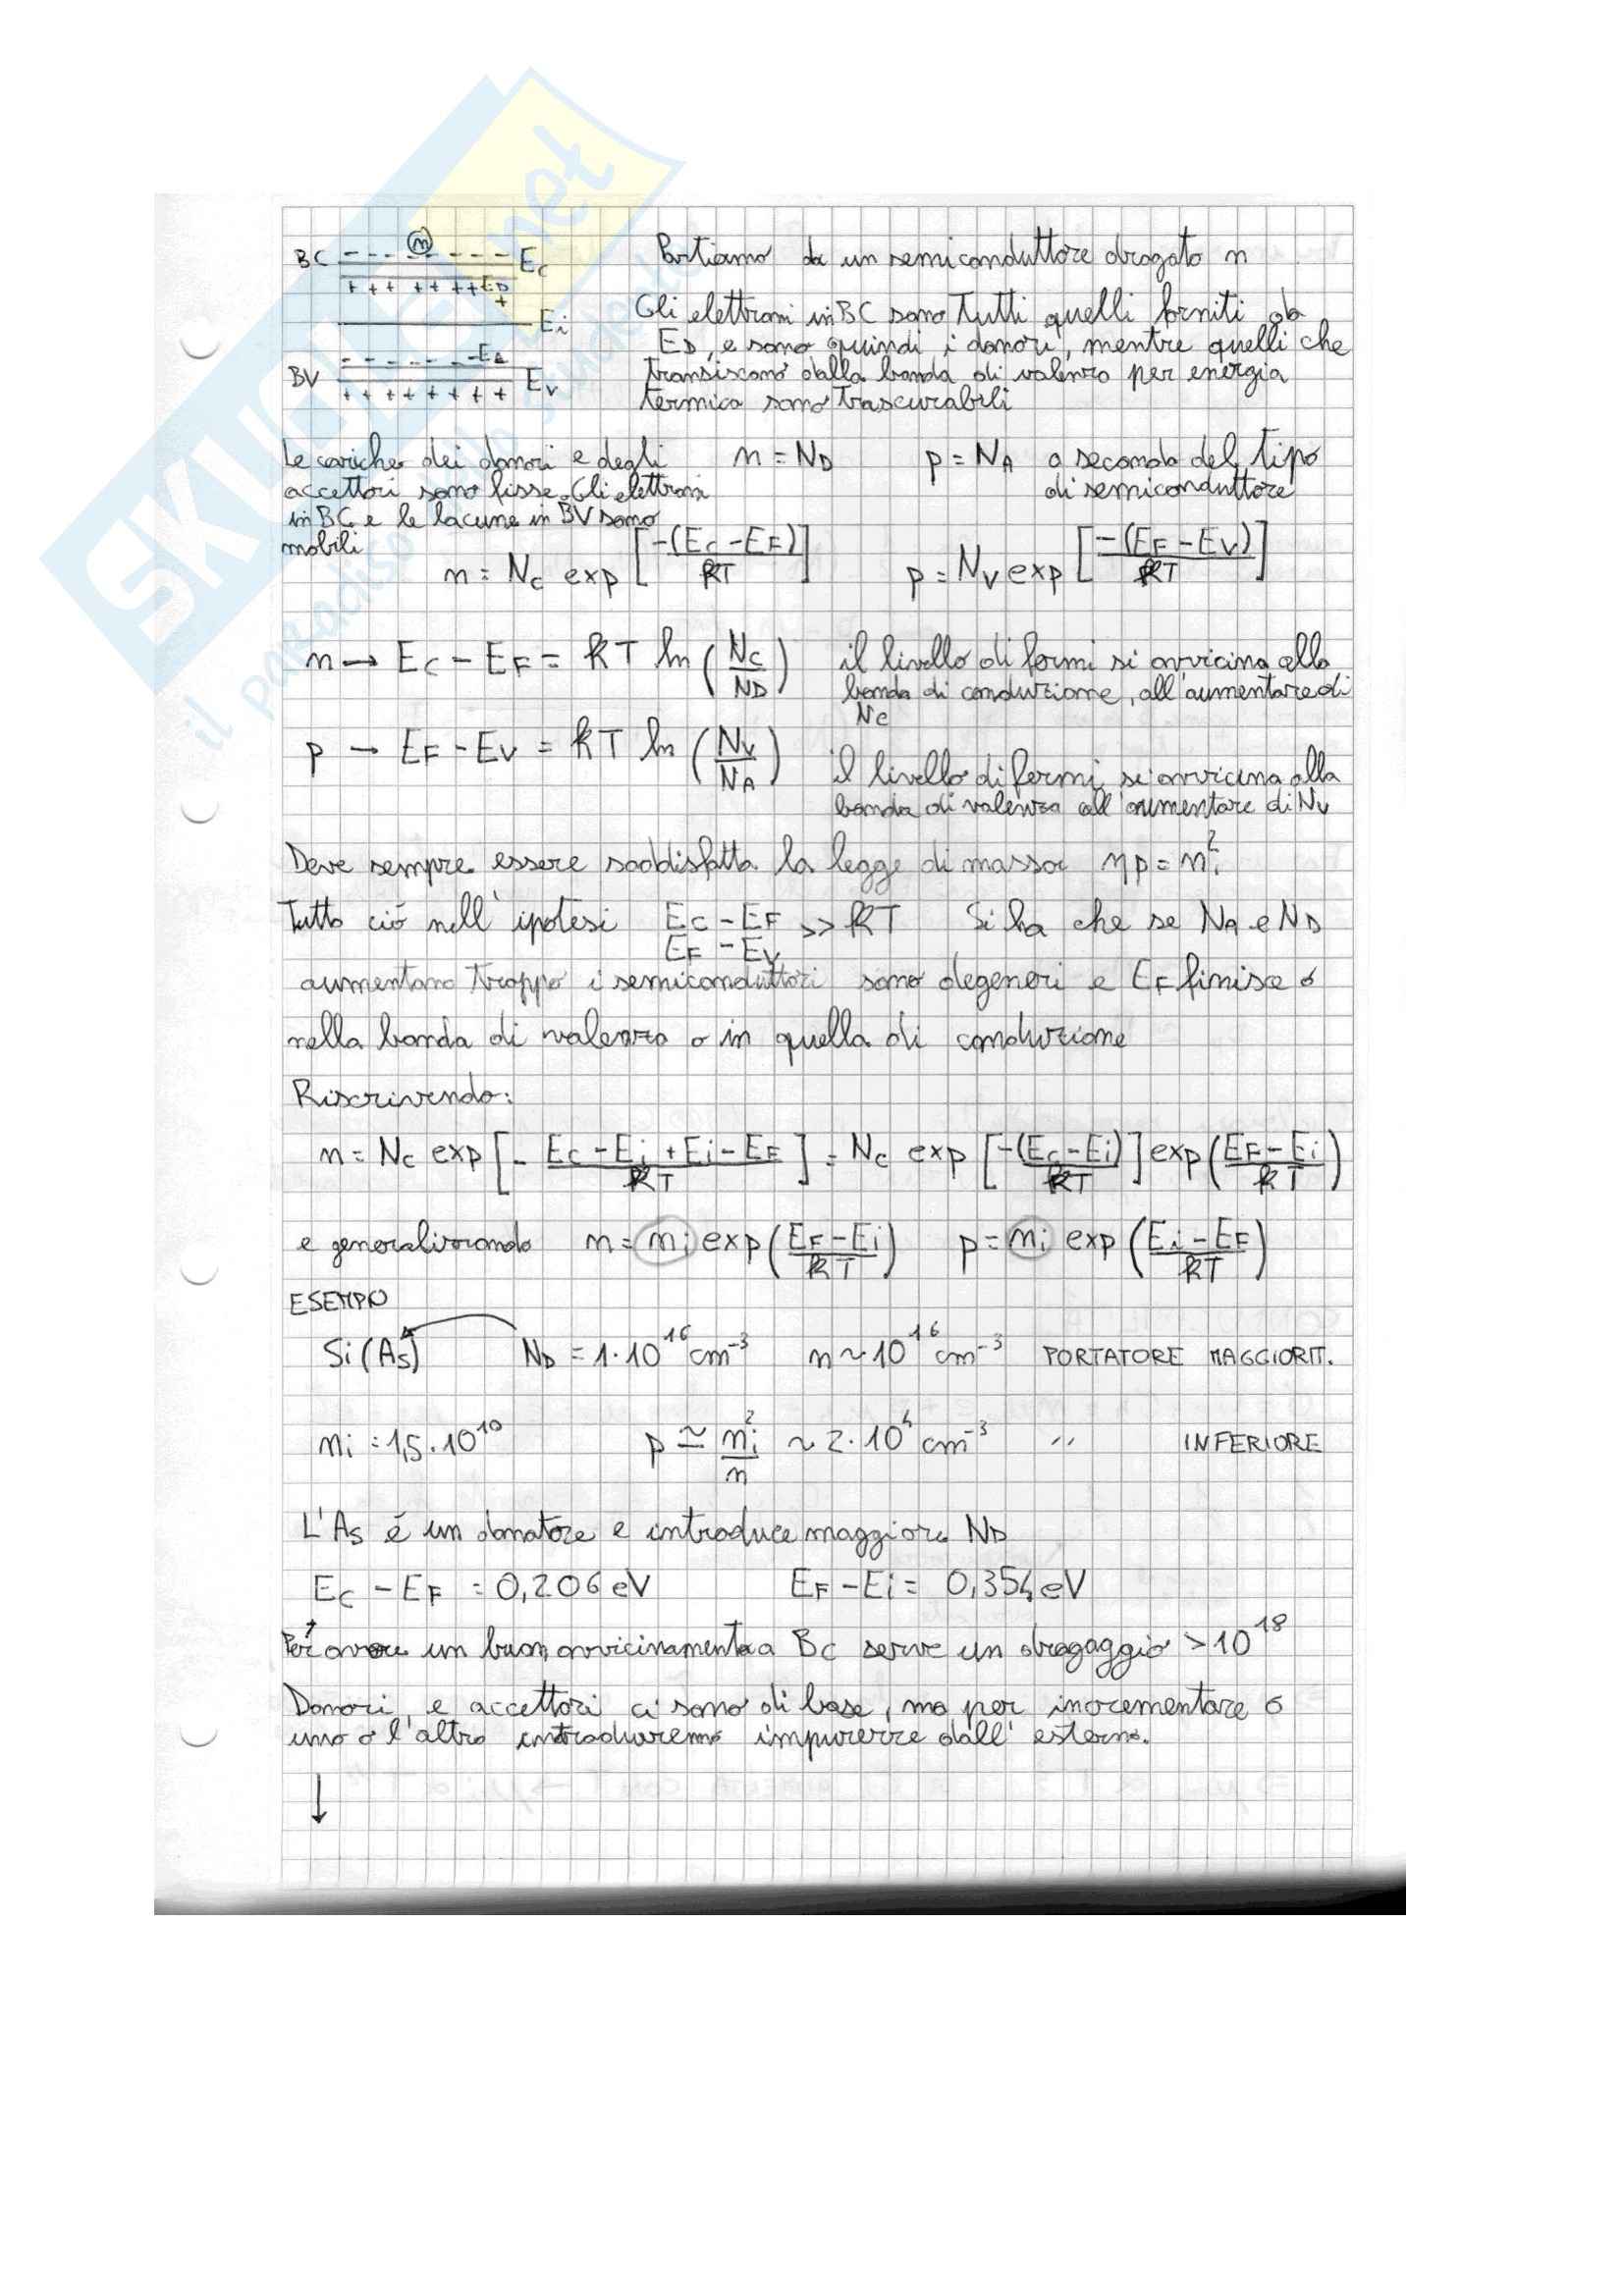 SKUOLA.net
il paradiso dello studente
BC - - - n - - - - Ec
+ + + + + + + ED +
Ei
- - - - - - - EA
BV Ev
+ + + + + + + +
Partiamo da un semiconduttore drogato n
Gli elettroni in BC sono tutti quelli forniti da
ED, e sono quindi i donori, mentre quelli che
transiscono dalla banda di valenza per energia
termica sono trascurabili
Le cariche dei donori e degli n = ND p = NA a seconda del tipo
accettori sono fisse. Gli elettroni di semiconduttore
in BC e le lacune in BV sono
mobili
n = Nc exp [-(Ec-EF)/kT] p = Nv exp [-(EF-Ev)/kT]
n → Ec - EF = kT ln (Nc/ND) il livello di fermi si avvicina alla
banda di conduzione, all'aumentare di
Nc
p → EF - Ev = kT ln (Nv/NA) il livello di fermi si avvicina alla
banda di valenza all'aumentare di Nv
Deve sempre essere soddisfatta la legge di massa np = ni²
Tutto ciò nell'ipotesi Ec - EF >> kT Si ha che se NA e ND
EF - Ev
aumentano troppo i semiconduttori sono degeneri e EF finisce o
nella banda di valenza o in quella di conduzione
Riscrivendo:
n = Nc exp [- Ec-Ei+Ei-EF/kT] = Nc exp [-(Ec-Ei)/kT] exp (EF-Ei/kT)
e generalizzando n = ni exp (EF-Ei/kT) p = ni exp (Ei-EF/kT)
ESEMPIO
Si (As) ND = 1·10¹⁶ cm⁻³ n ~ 10¹⁶ cm⁻³ PORTATORE MAGGIORIT.
ni = 1,5·10¹⁰ p ≃ ni²/n ~ 2·10⁴ cm⁻³ " INFERIORE
L'As é un donatore e introduce maggiore ND
Ec - EF = 0,206 eV EF - Ei = 0,354 eV
Per avere un buon avvicinamento a Bc serve un drogaggio > 10¹⁸
Donori, e accettori ci sono di base, ma per incrementare o
uno o l'altro introduremo impurezze dall'esterno.